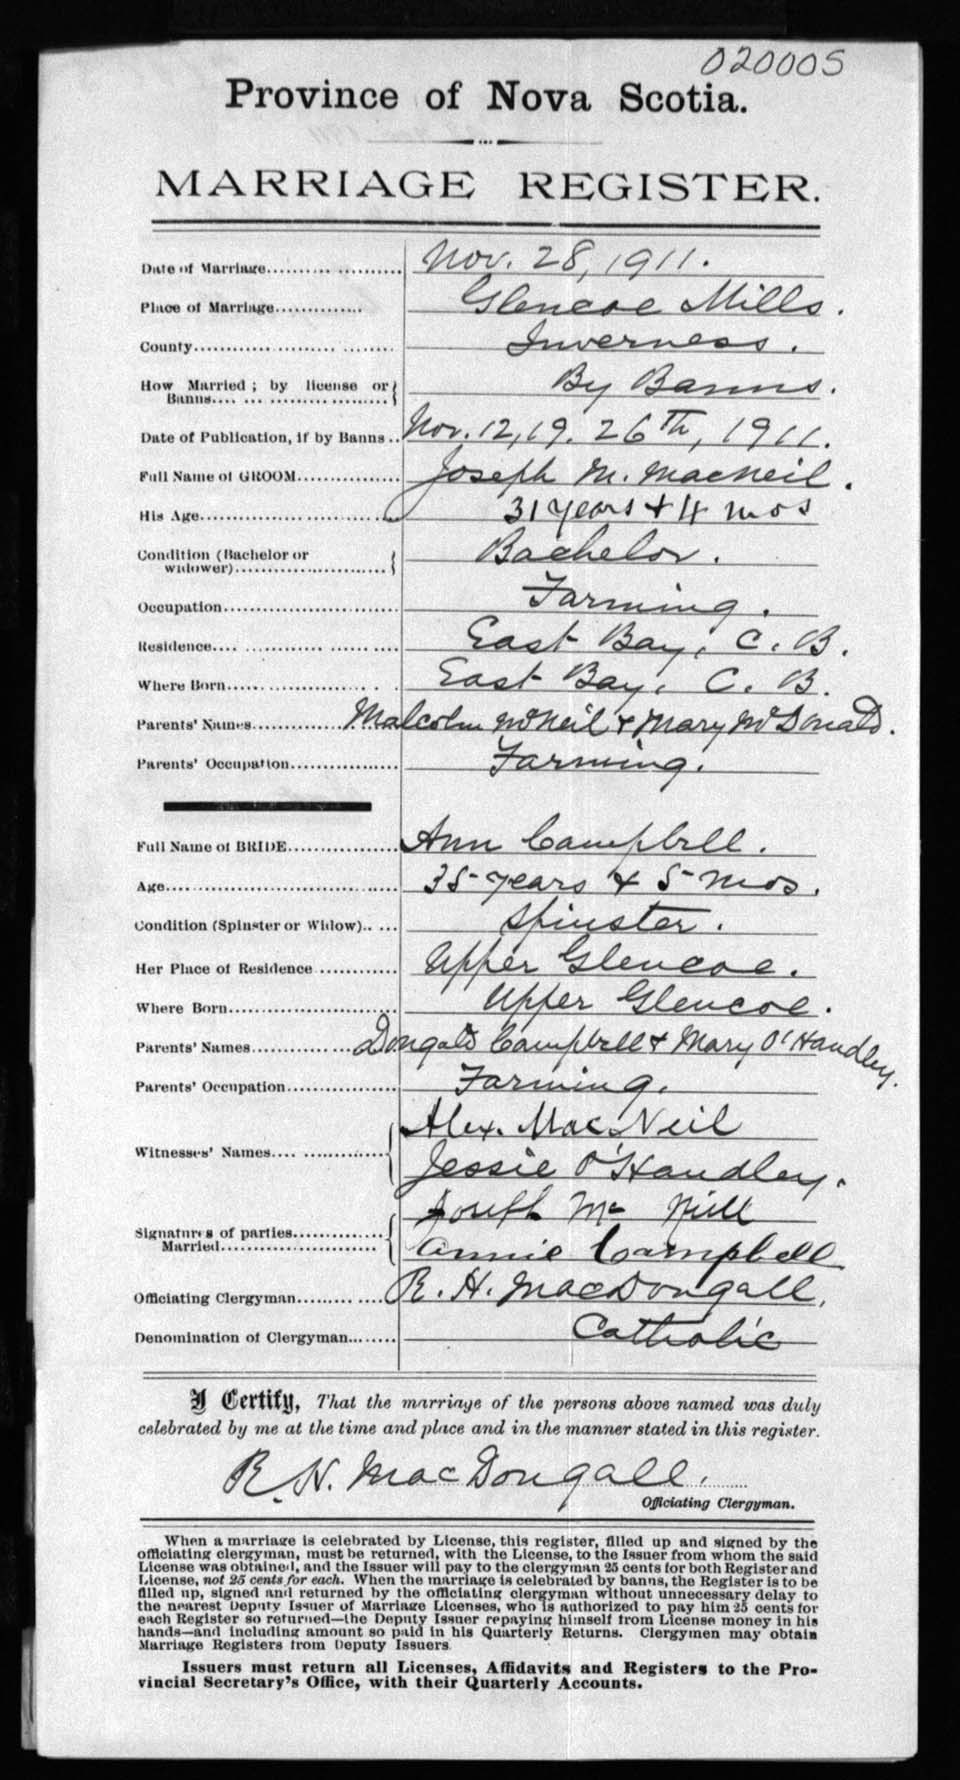 020005
Province of Nova Scotia.
MARRIAGE REGISTER.
Date of Marriage Nov. 28, 1911.
Place of Marriage Glencoe Mills.
County Inverness.
How Married ; by license or
Banns By Banns.
Date of Publication, if by Banns Nov. 12, 19. 26th, 1911.
Full Name of GROOM Joseph M. MacNeil.
His Age 31 years + 4 mos
Condition (Bachelor or
widower) Bachelor.
Occupation Farming.
Residence East Bay, C. B.
Where Born East Bay, C. B.
Parents' Names Malcolm McNeil + Mary McDonald.
Parents' Occupation Farming.
Full Name of BRIDE Ann Campbell.
Age 35 years + 5 mos.
Condition (Spinster or Widow) Spinster.
Her Place of Residence Upper Glencoe.
Where Born Upper Glencoe.
Parents' Names Dongald Campbell + Mary O'Handley.
Parents' Occupation Farming.
Witnesses' Names Alex. MacNeil
Jessie O'Handley.
Signatures of parties
Married Joseph Mc Niell
Annie Campbell
Officiating Clergyman R. H. MacDougall.
Denomination of Clergyman Catholic
I Certify, That the marriage of the persons above named was duly
celebrated by me at the time and place and in the manner stated in this register.
R. H. MacDougall.
Officiating Clergyman.
When a marriage is celebrated by License, this register, filled up and signed by the
officiating clergyman, must be returned, with the License, to the Issuer from whom the said
License was obtained, and the Issuer will pay to the clergyman 25 cents for both Register and
License, not 25 cents for each. When the marriage is celebrated by banns, the Register is to be
filled up, signed and returned by the officiating clergyman without unnecessary delay to
the nearest Deputy Issuer of Marriage Licenses, who is authorized to pay him 25 cents for
each Register so returned—the Deputy Issuer repaying himself from License money in his
hands—and including amount so paid in his Quarterly Returns. Clergymen may obtain
Marriage Registers from Deputy Issuers
Issuers must return all Licenses, Affidavits and Registers to the Pro-
vincial Secretary's Office, with their Quarterly Accounts.